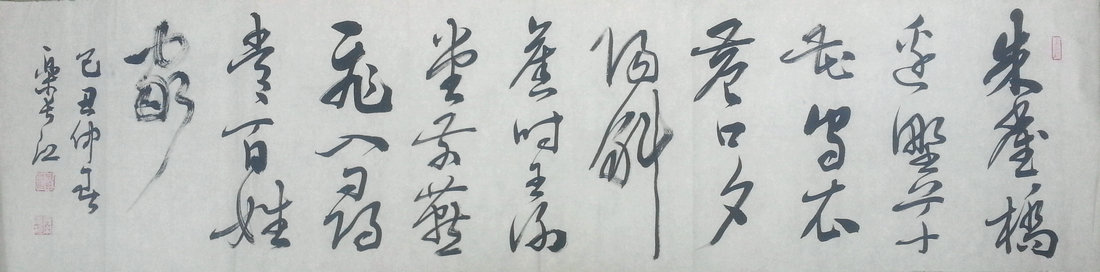 朱雀橋
邊野草
花烏衣
巷口夕
陽斜
舊時王謝
堂前燕
飛入尋
常百姓
家
己丑仲春
樂長江